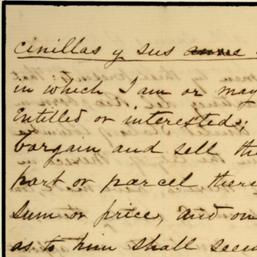 cinillas y sus
in which I am or may
Entitled or interested;
bargain and sell the
part or parcel there
sum or price, and on
as to him shall seem